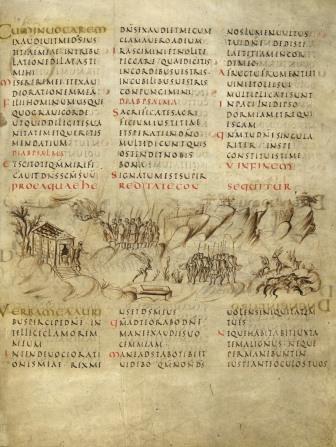 CUMINUOCAREM
EXAUDIUITMEDSIUS
TITIAEMEAE INTRIBU
LATIONEDILATASTI
MIHI
MISEREREMEIETEXAU
DIORATIONEMMEA
FILIIHOMINUMUSQUE
QUOGRAUICORDE
UTQUIDDILIGITISUA
NITATEMETQUERITIS
MENDATIUM
DIAPSALMA
ETSCITOTEQMMIRIFI
CAUITDNSSCMSUU
PROEAQUAEHE
DNSEXAUDIETMECUM
CLAMAUEROADEUM
IRASCIMINIETNOLITE
PECCARE QUAEDICITIS
INCORDIBUSUESTRIS
INCUBILIBUSUESTRIS
CONPUNGIMINI
DIAPSALMA
SACRIFICATESACRI
FICIUMIUSTITIAE
ETSPERATEINDNO
MULTIDICUNTQUIS
OSTENDITNOBIS
BONA
SIGNATUMESTSUPER
REDITATECON
NOSLUMENUULTUS
TUIDNE DEDISTI
LAETITIAMINCOR
DEMEO
AFRUCTUFRUMENTI
UINIETOLEISUI
MULTIPLICATISUNT
INPACEINIDIPSO
DORMIAMETREQUI
ESCAM
QNMTUDNESINGULA
RITER INSPE
CONSTITUISTIME
V INFINEM
SEQUITUR
VERBAMEAAURI
BUSPERCIPEDNE IN
TELLEGECLAMOREM
MEUM
INTENDEUOCIORATI
ONISMEAE REXME
USETDSMEUS
QMADTEORABODNE
MANEEXAUDISUO
CEMMEAM
MANEADSTABOTIBIET
UIDEBO QMNONDS
UOLENSINIQUITATE
TUES
NEQUEHABITABITIUXTA
TEMALIGNUS NEQUE
PERMANEBUNTIN
IUSTIANTEOCULOSTUOS